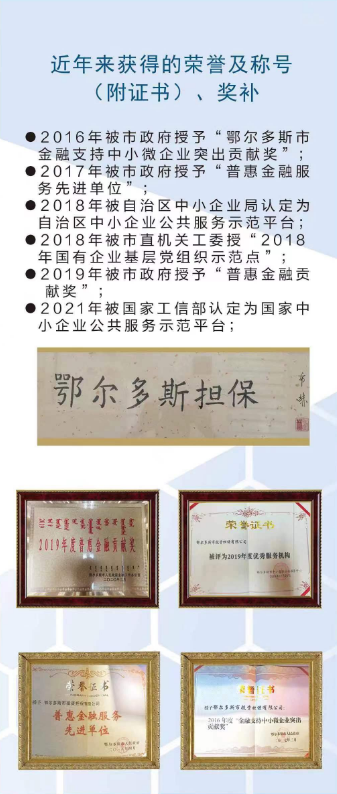 近年来获得的荣誉及称号
（附证书）、奖补
●2016年被市政府授予“鄂尔多斯市
金融支持中小微企业突出贡献奖”；
●2017年被市政府授予“普惠金融服
务先进单位”；
●2018年被自治区中小企业局认定为
自治区中小企业公共服务示范平台；
●2018年被市直机关工委授“2018
年国有企业基层党组织示范点”；
●2019年被市政府授予“普惠金融贡
献奖”；
●2021年被国家工信部认定为国家中
小企业公共服务示范平台；
鄂尔多斯担保
2019年度普惠金融贡献奖
荣誉证书
被评为2019年度优秀服务机构
荣誉证书
普惠金融服务
先进单位
荣誉证书
2016年度“金融支持中小微企业突出
贡献奖”